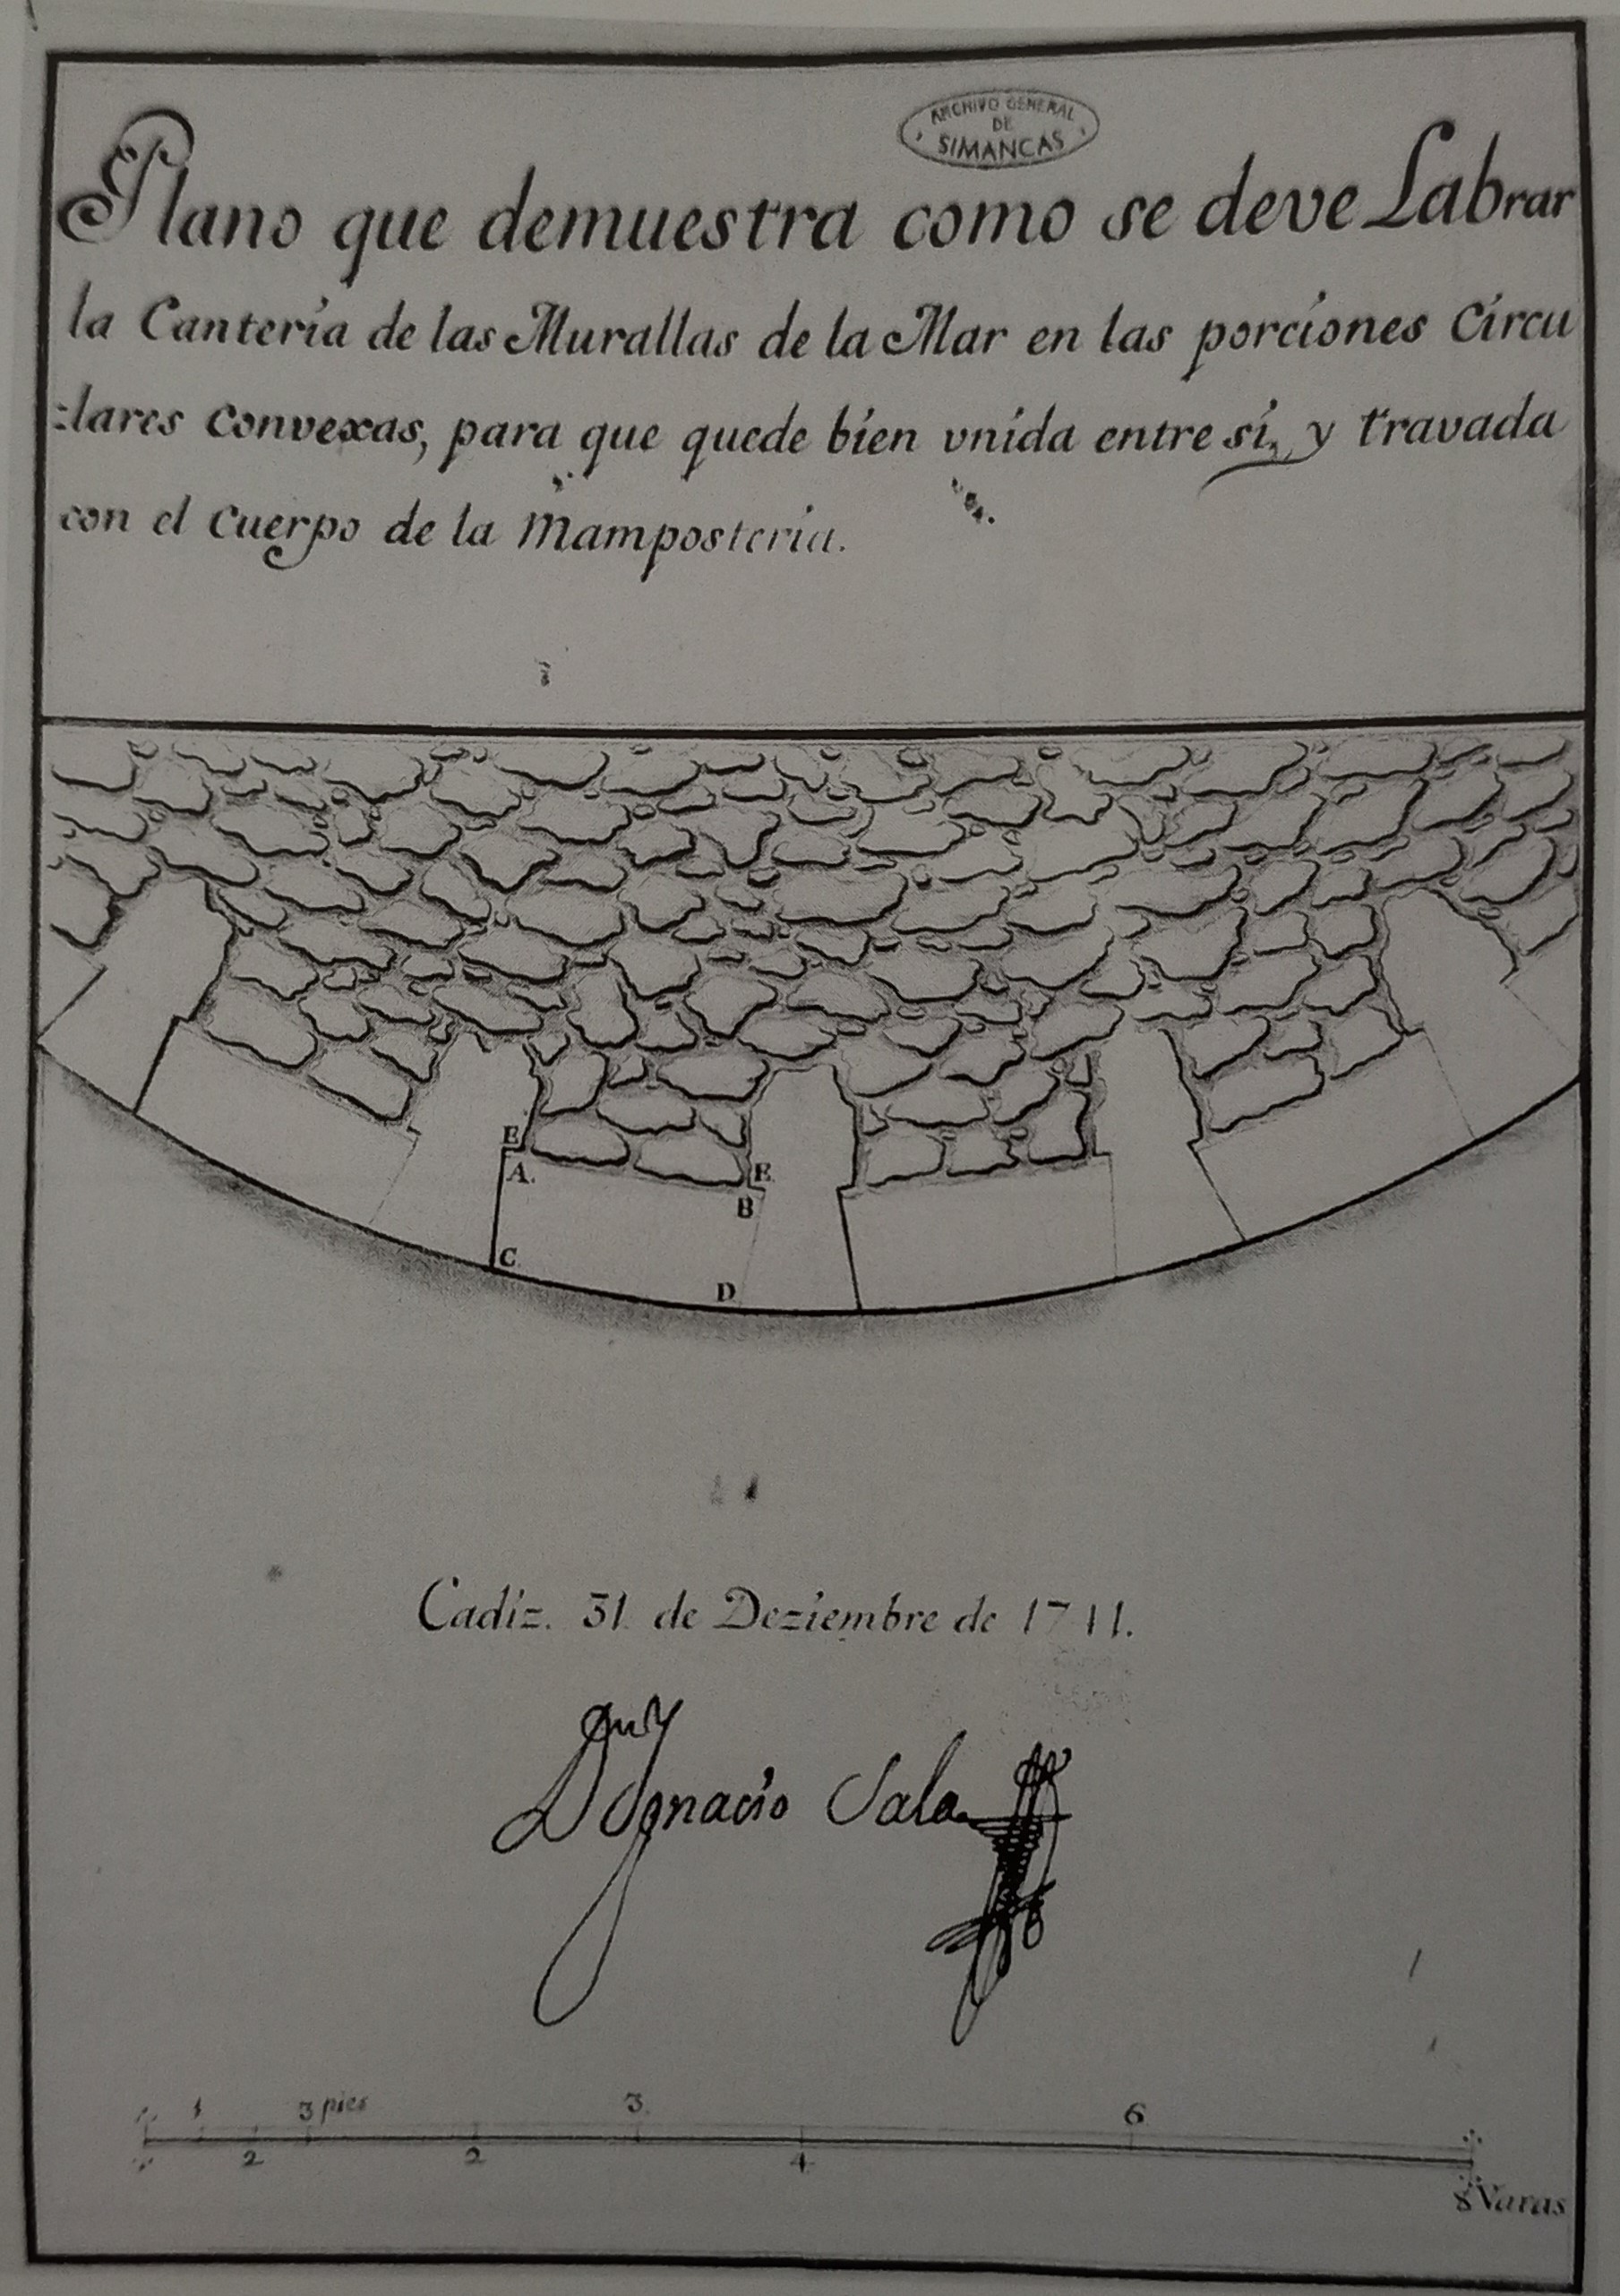 ARCHIVO GENERAL
DE
SIMANCAS
Plano que demuestra como se deve Labrar
la Cantería de las Murallas de la Mar en las porciones Circu
=lares Convexas, para que quede bien vnida entre sí, y travada
con el Cuerpo de la Mamposteria.
E
A.
E
B
C
D
Cadiz. 31 de Deziembre de 1741.
Dn Ygnacio Sala
1 3 pies 3. 6
2 2 4
8 Varas